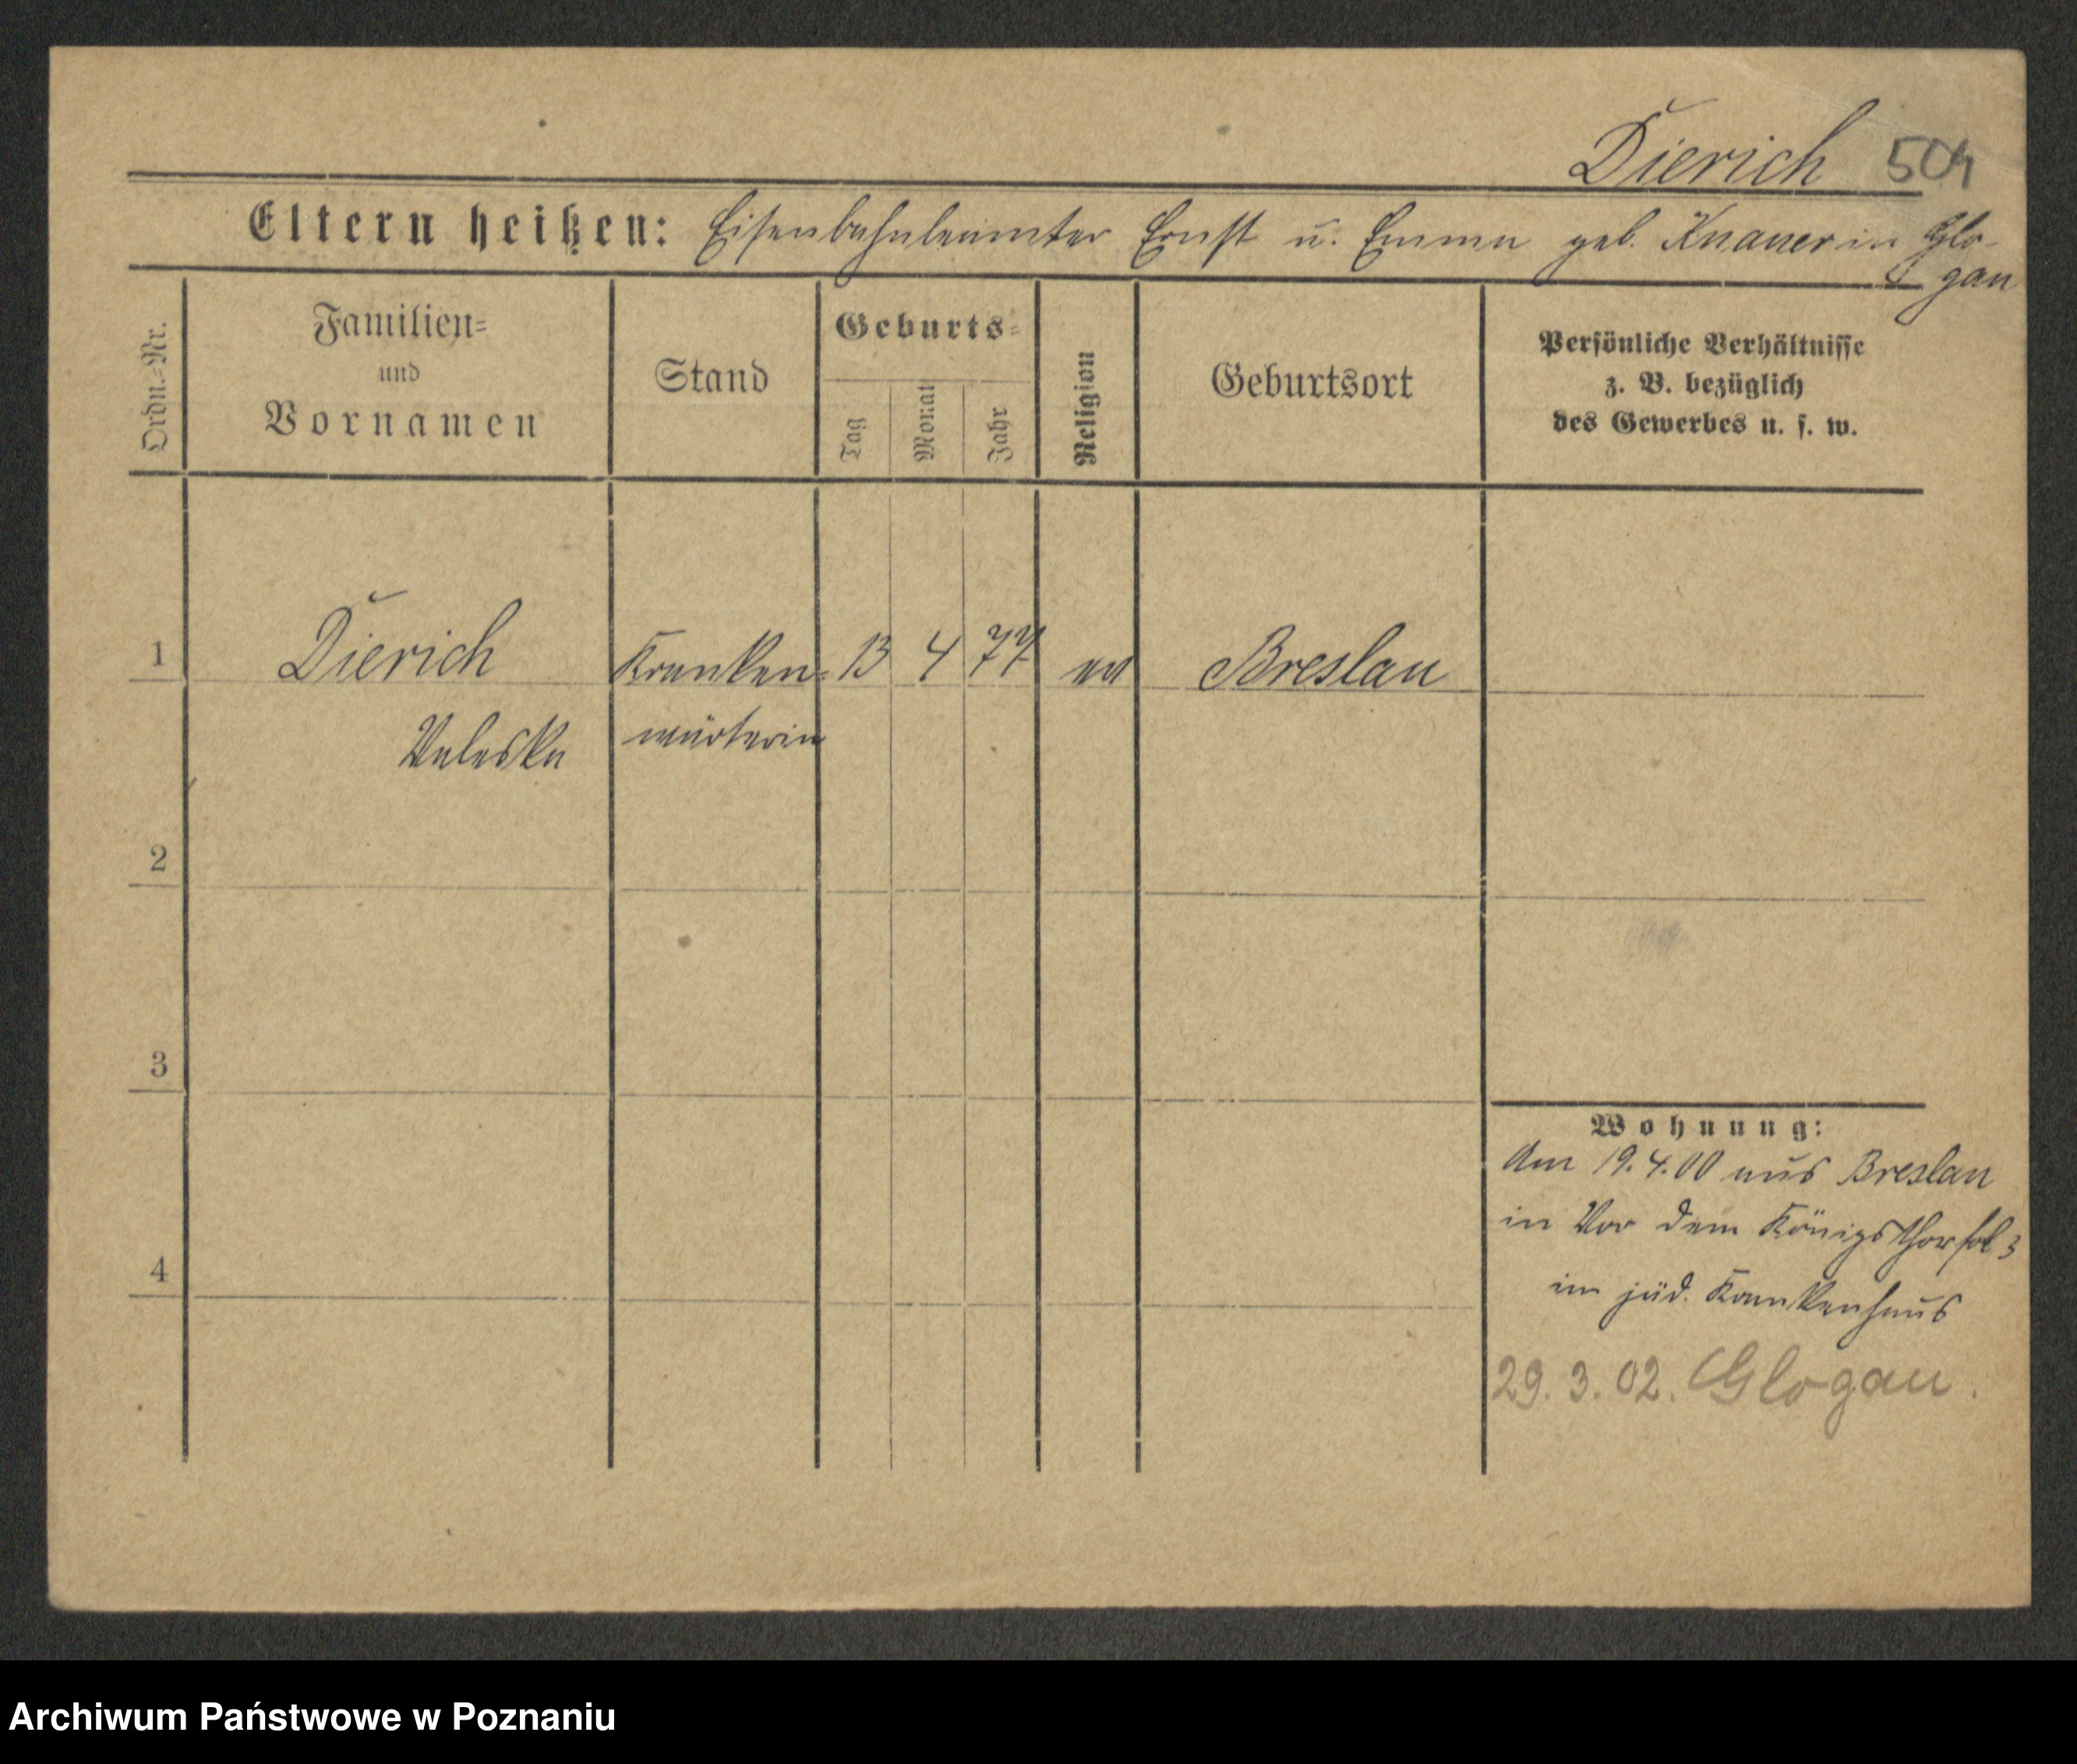 Dierich 504
Eltern heißen: Eisenbahnbeamter Ernst u. Emma geb. Knauer in Glo-
gau
Ordn.=Nr.
Familien=
und
Vornamen
Stand
Geburts=
Tag
Monat
Jahr
Religion
Geburtsort
Persönliche Verhältnisse
z. B. bezüglich
des Gewerbes u. s. w.
1 Dierich Kranken= 13 4 77 ev Breslau
Valeska wärterin
2
3
Wohnung:
Am 19.4.00 aus Breslau
in Vor dem Königsthor 3
4
im jüd. Krankenhaus
29. 3. 02. Glogau.
Archiwum Państwowe w Poznaniu